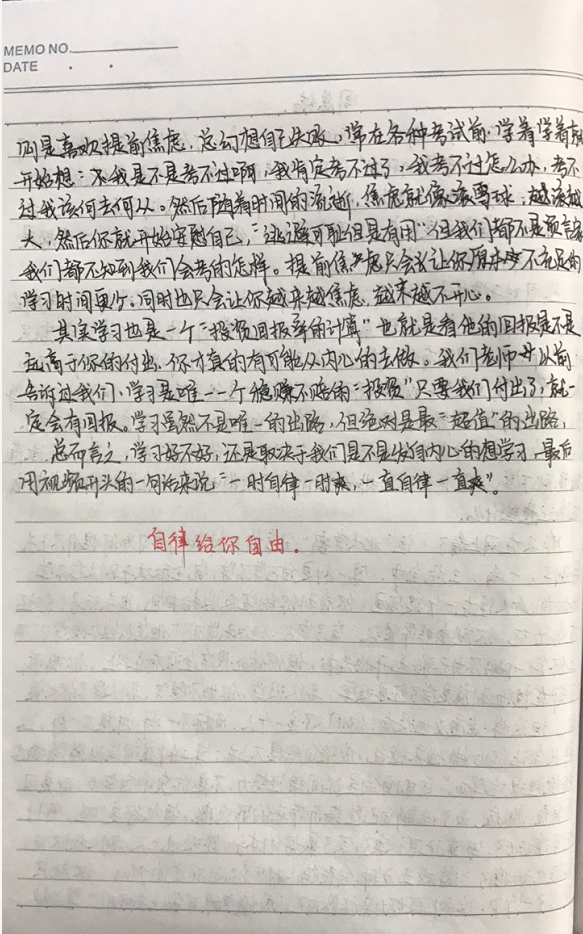 MEMO NO.
DATE
们是喜欢提前焦虑，总幻想自己失败，常在各种考试前，学着学着就
开始想：“我是不是考不过啊，我肯定考不过了，我考不过怎么办，考不
过我该何去何从。然后随着时间的流逝，焦虑就像滚雪球，越滚越
大，然后你就开始安慰自己，“逃避可耻但是有用”但我们都不是预言家
我们都不知到我们会考的怎样。提前焦虑只会让你原本不充足的
学习时间更少。同时也只会让你越来越焦虑，越来越不开心。
其实学习也是一个“投资回报率的计算”也就是看他的回报是不是
高于你的付出，你才真的有可能从内心的去做。我们老师以前
告诉过我们，学习是唯一一个稳赚不赔的“投资”只要我们付出了，就一
定会有回报。学习虽然不是唯一的出路，但绝对是最“超值”的出路，
总而言之，学习好不好，还是取决于我们是不是发自内心的想学习，最后
用视频开头的一句话来说“一时自律一时爽，一直自律一直爽”。
自律给你自由.